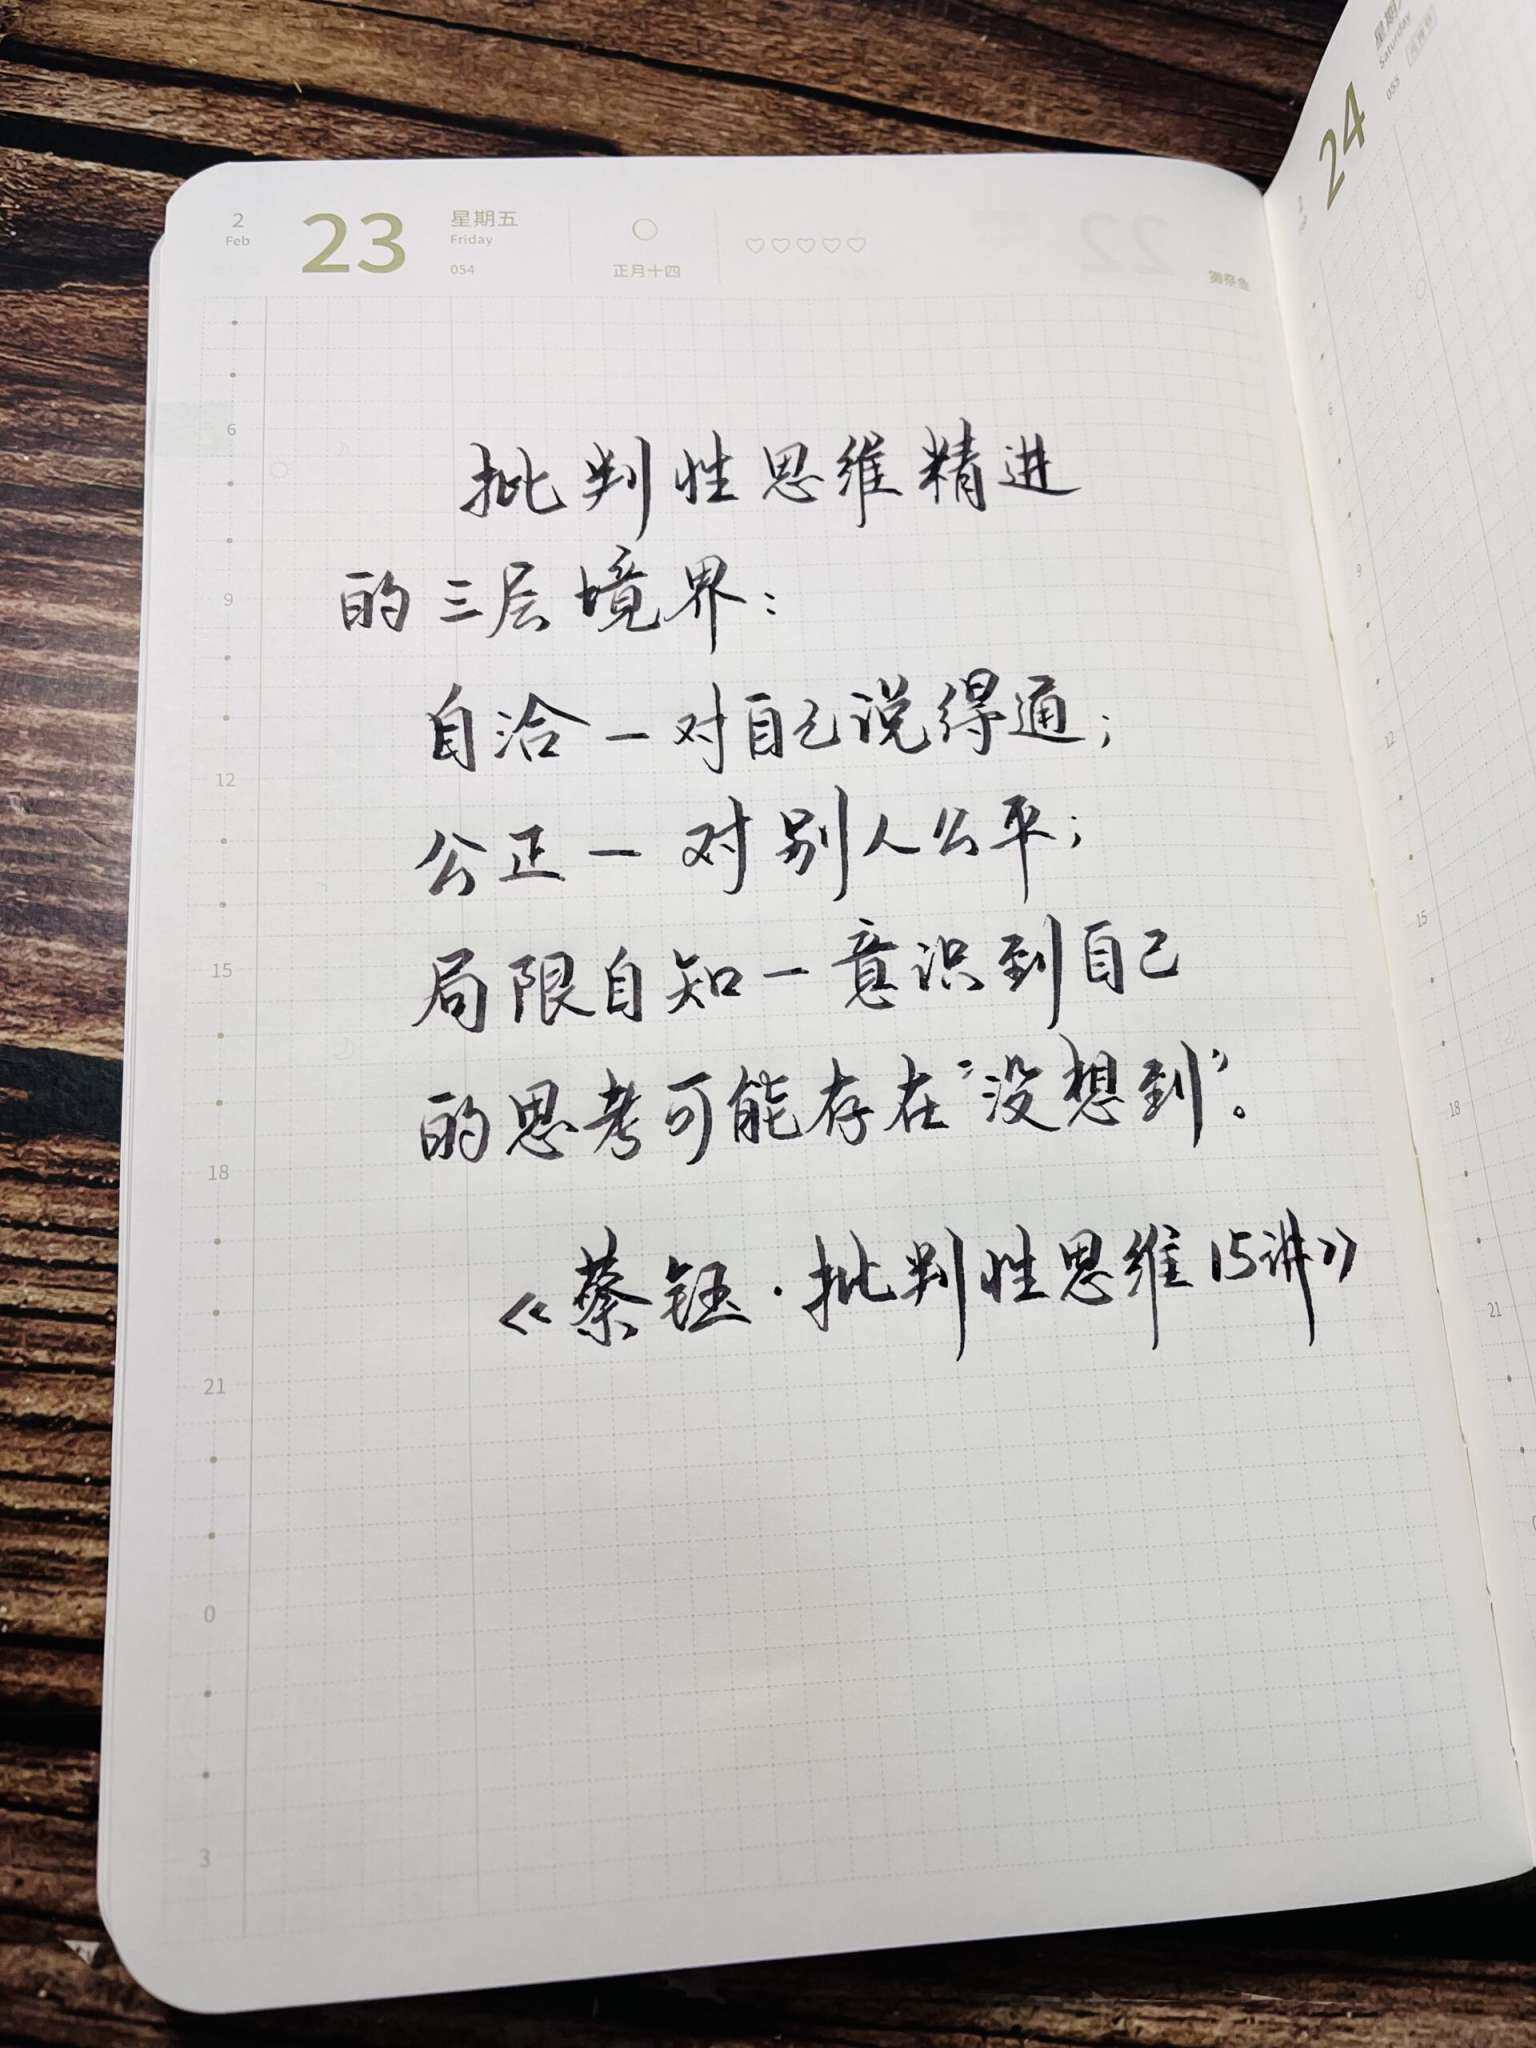 2
Feb
23
星期五
Friday
054
正月十四
24
Saturday
055
6
9
12
15
18
21
0
3
批判性思维精进
的三层境界：
自洽—对自己说得通；
公正—对别人公平；
局限自知—意识到自己
的思考可能存在“没想到”。
《蔡钰·批判性思维15讲》
6
9
12
15
18
21